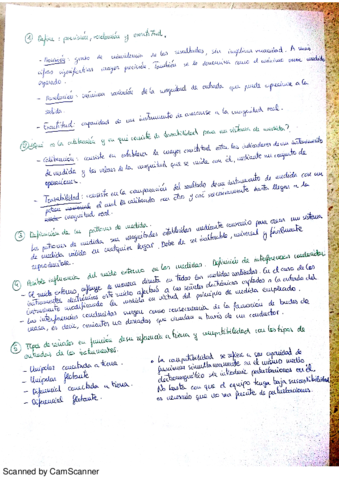 ① Define: precisión, resolución y exactitud.
- Precisión: grado de concordancia de los resultados, sin implicar exactitud. A más
cifras significativas mayor precisión. También se le denomina como el mínimo error medible
- Resolución: mínima variación de la magnitud de entrada que puede apreciarse a la
salida.
- Exactitud: capacidad de un instrumento de acercarse a la magnitud real.
② ¿Qué es la calibración y en qué consiste la trazabilidad para un sistema de medida?
- Calibración: consiste en establecer la mayor exactitud entre los indicadores de un instrumento
de medida y los valores de la magnitud que se mide con él, mediante un conjunto de
operaciones.
- Trazabilidad: consiste en la comparación del resultado de un instrumento de medida con un
patrón el cual ha calibrado con otro y así sucesivamente hasta llegar a la
magnitud real.
③ Definición de un patrón de medida.
Los patrones de medida son magnitudes establecidas mediante acuerdo para crear un sistema
de medida válido en cualquier lugar. Debe de ser inalterable, universal y fácilmente
reproducible.
④ del ruido externo en las medidas. Definición de interferencias conducidas
El ruido externo a manera directa en todas las medidas tomadas. En el caso de los
instrumentos electrónicos este ruido afectará a las señales electrónicas captadas a la entrada del
instrumento modificando la medida en virtud del principio de medida empleado.
Las interferencias conducidas surgen como consecuencia de la formación de bucles de
masa, es decir, corrientes no deseadas que circulan a través de un conductor.
⑤ Tipos de señales en función de su referencia a tierra y compatibilidad con los tipos de
entradas de los instrumentos.
- Unipolar conectada a tierra.
- Unipolar flotante
- Diferencial conectada a tierra.
- Diferencial flotante.
• La compatibilidad se refiere a ser capacidad de
funcionar simultáneamente en el mismo medio
electromagnético sin introducir perturbaciones en él.
No basta con que el equipo tenga baja susceptibilidad
es necesario que no sea fuente de perturbaciones.
Scanned by CamScanner